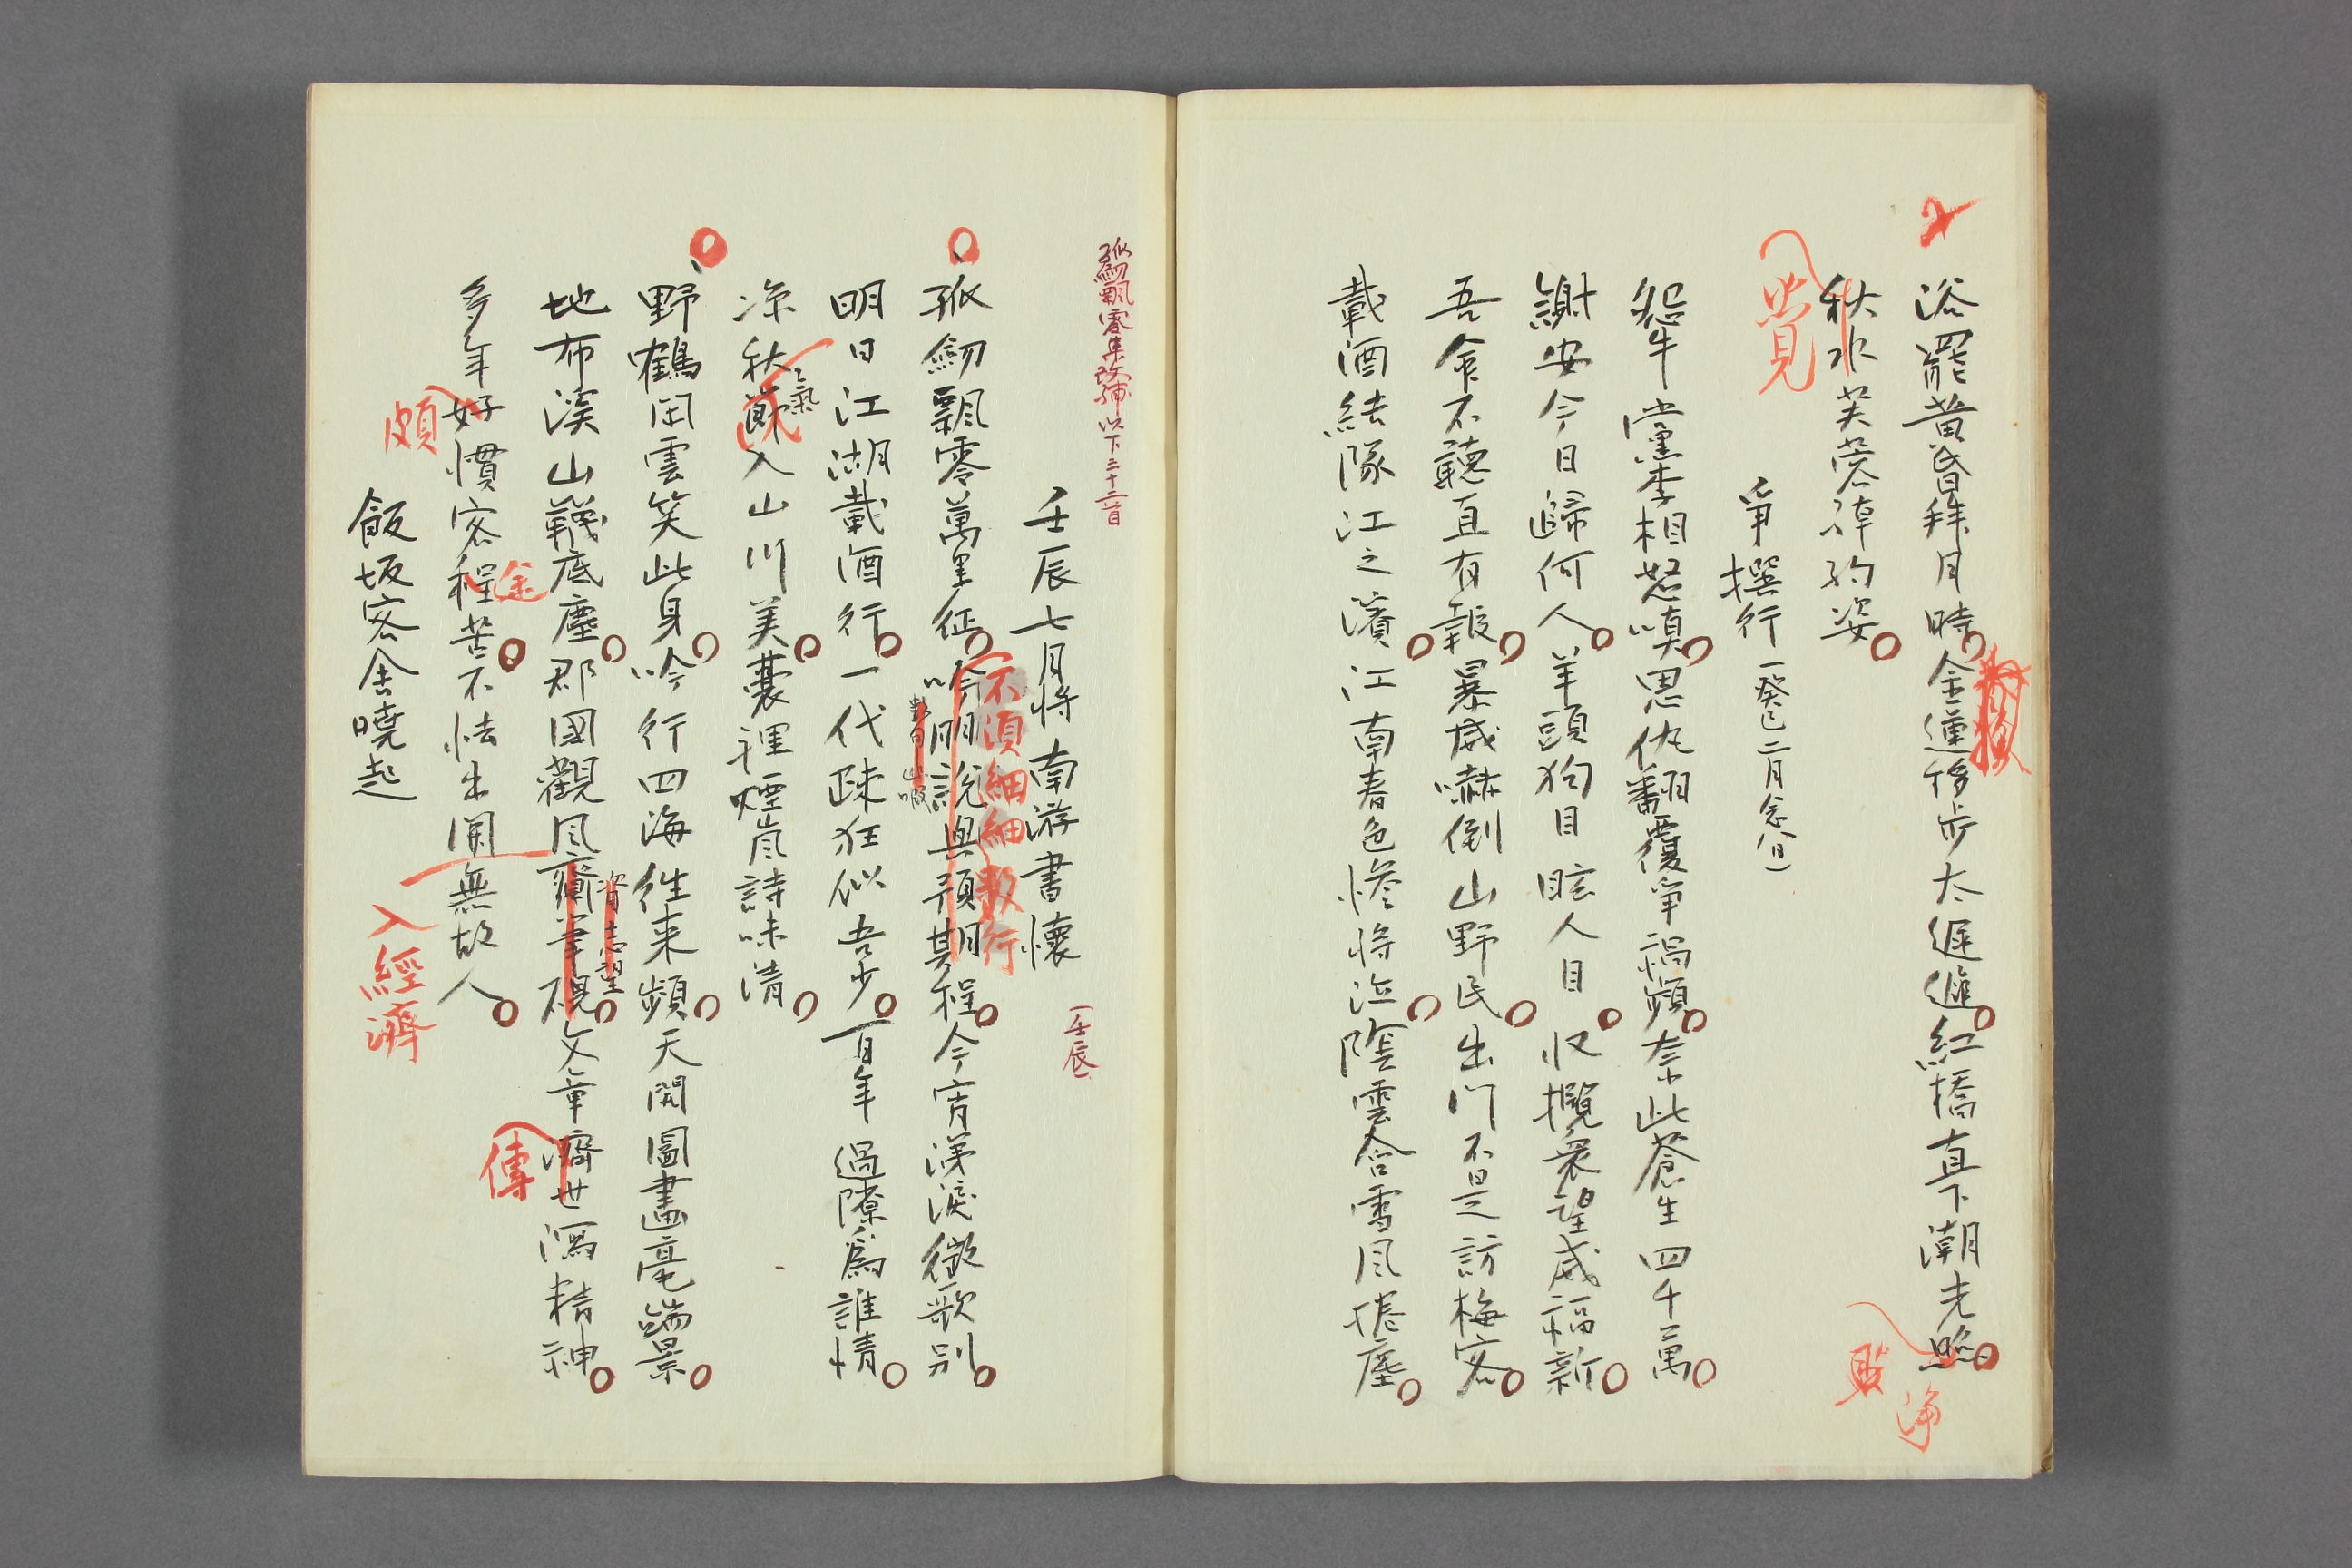 浴罷黄昏拜月時金蓮移步太遲遲紅橋直下潮光照
秋水芙蓉綽約姿
覺
淨
爭撰行(癸巳二月念八日)
怨牛黨李相怒嗔恩仇翻覆爭禍頻奈此蒼生四千萬
謝安今日歸何人羊頭狗目眩人目收攬衆望威福新
吾舍不聽直有報暴威嚇倒山野民出門不是訪梅客
載酒結隊江之濱江南春色慘將泣陰雲合雪風捲塵
孤劒飄零集改補以下三十二首
壬辰七月将南游書懷
(壬辰)
孤劒飄零萬里征吟朋説與預期程今宵涕淚徵歌別
不須細細數行
明日江湖載酒行一代疎狂似吾少百年過隙爲誰情
凉秋節入山川美囊裡煙嵐詩味清
氣
野鶴閑雲笑此身吟行四海往来頻天開圖畫毫端景
地布溪山韈底塵郡國觀風齎筆硯文章濟世瀉精神
資志望
傳
多年好慣客程苦不怯出關無故人
頗
途
入經濟
飯坂客舍曉起